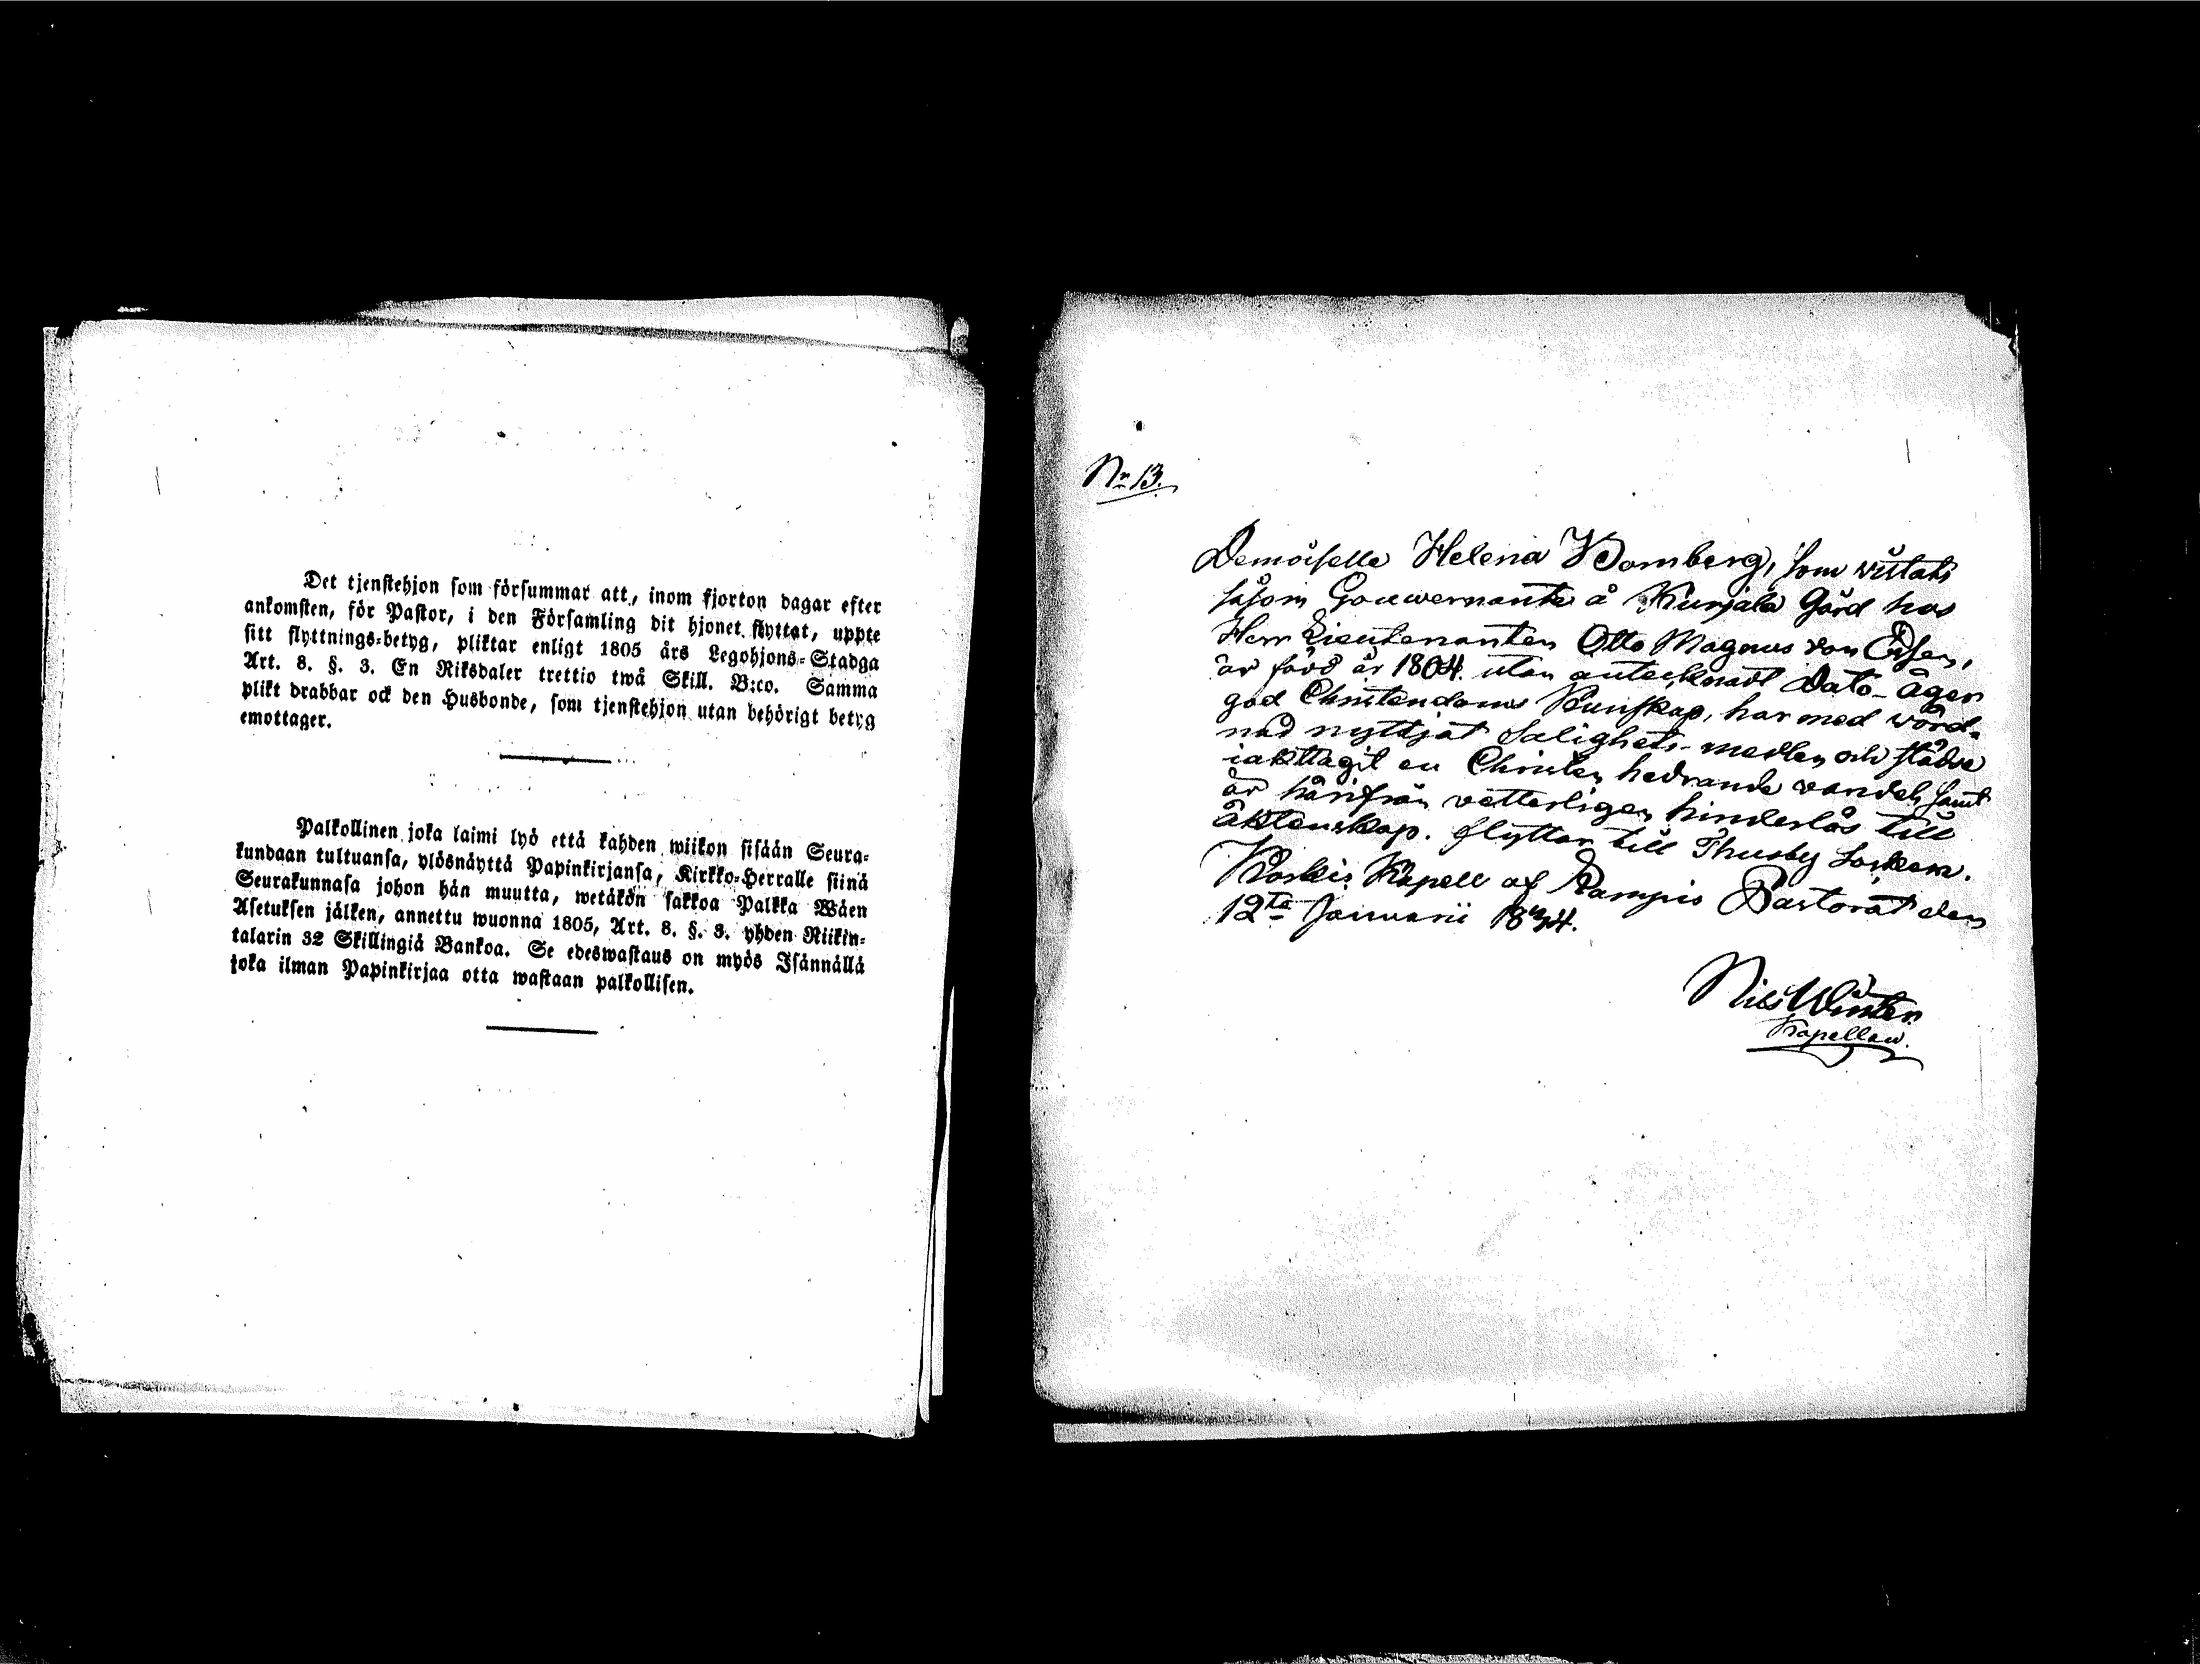 Det tjenstehjon som försummar att, inom fjorton dagar efter
ankomsten, för Pastor, i den Församling dit hjonet flyttat, uppte
sitt flyttnings-betyg, pliktar enligt 1805 års Legohjons-Stadga
Art. 8. §. 3. En Riksdaler trettio twå Skill. B:co. Samma
plikt drabbar ock den Husbonde, som tjenstehjon utan behörigt betyg
emottager.
Palkollinen joka laimi lyö että kahden wiikon sisään Seura-
kundaan tultuansa, ylösnäyttä Papinkirjansa, Kirkko-Herralle siinä
Seurakunnasa johon hän muutta, wetäkön sakkoa Palkka Wäen
Asetuksen jälken, annettu wuonna 1805, Art. 8. §. 3. yhden Riikin-
talarin 32 Skillingiä Bankoa. Se edeswastaus on myös Isännällä
joka ilman Papinkirjaa otta wastaan palkollisen.
No 13.
Demoiselle Helena Bomberg, som vistats
såsom Gouvernante å Kurjala Gård hos
Herr Lieutenanten Otto Magnus von Essen,
är född år 1804. utan antecknadt Dato- äger
god Christendoms Kunskap, har med wörd-
nad nyttjat Salighets-medlen och städse
iakttagit en Christen hedrande vandel, samt
är härifrån vetterligen hinderlös till
äktenskap. flyttar till Thusby Socken.
Koskis Kapell af Pampis Pastorat den
12te Januarii 1834.
Nils
Kapellan.